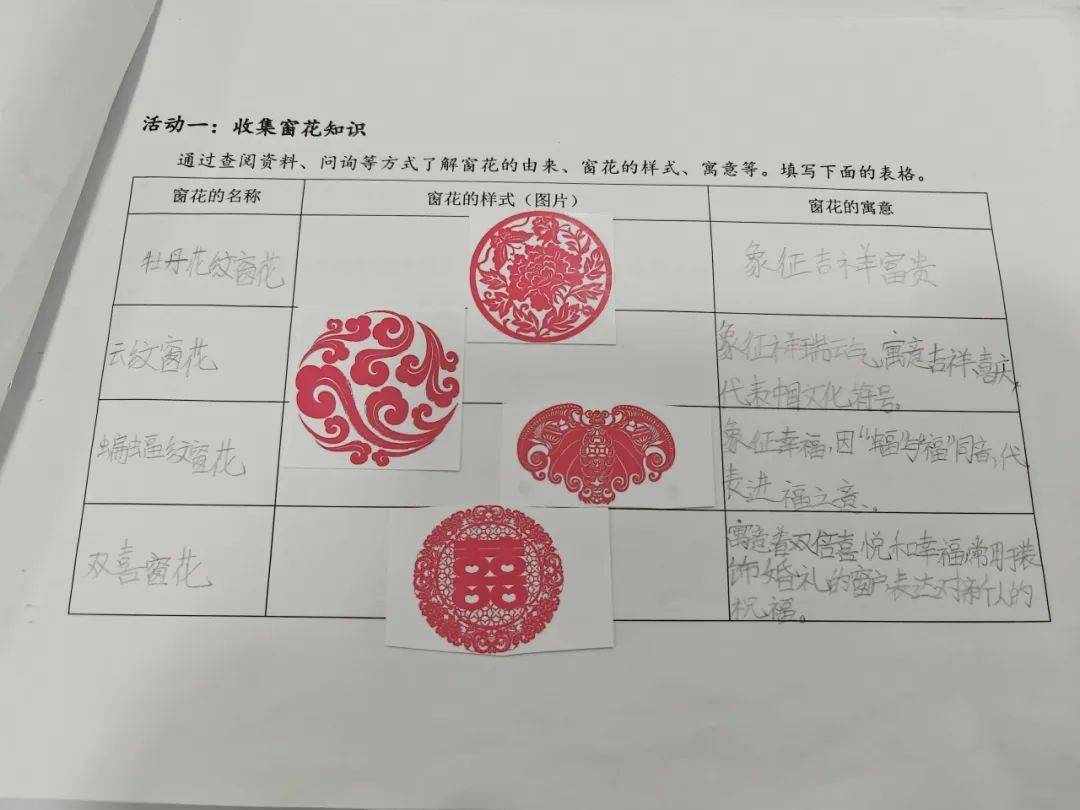 活动一：收集窗花知识
通过查阅资料、问询等方式了解窗花的由来、窗花的样式、寓意等。填写下面的表格。
窗花的名称 窗花的样式（图片） 窗花的寓意
牡丹花纹窗花 象征吉祥富贵
云纹窗花 象征祥瑞云气，寓意吉祥、喜庆，
代表中国文化符号。
蝙蝠纹窗花 象征幸福，因“蝠”与“福”同音，代
表进福之意。
双喜窗花 寓意着双倍喜悦和幸福，常用于装
饰婚礼的窗户，表达对新人的
祝福。
囍